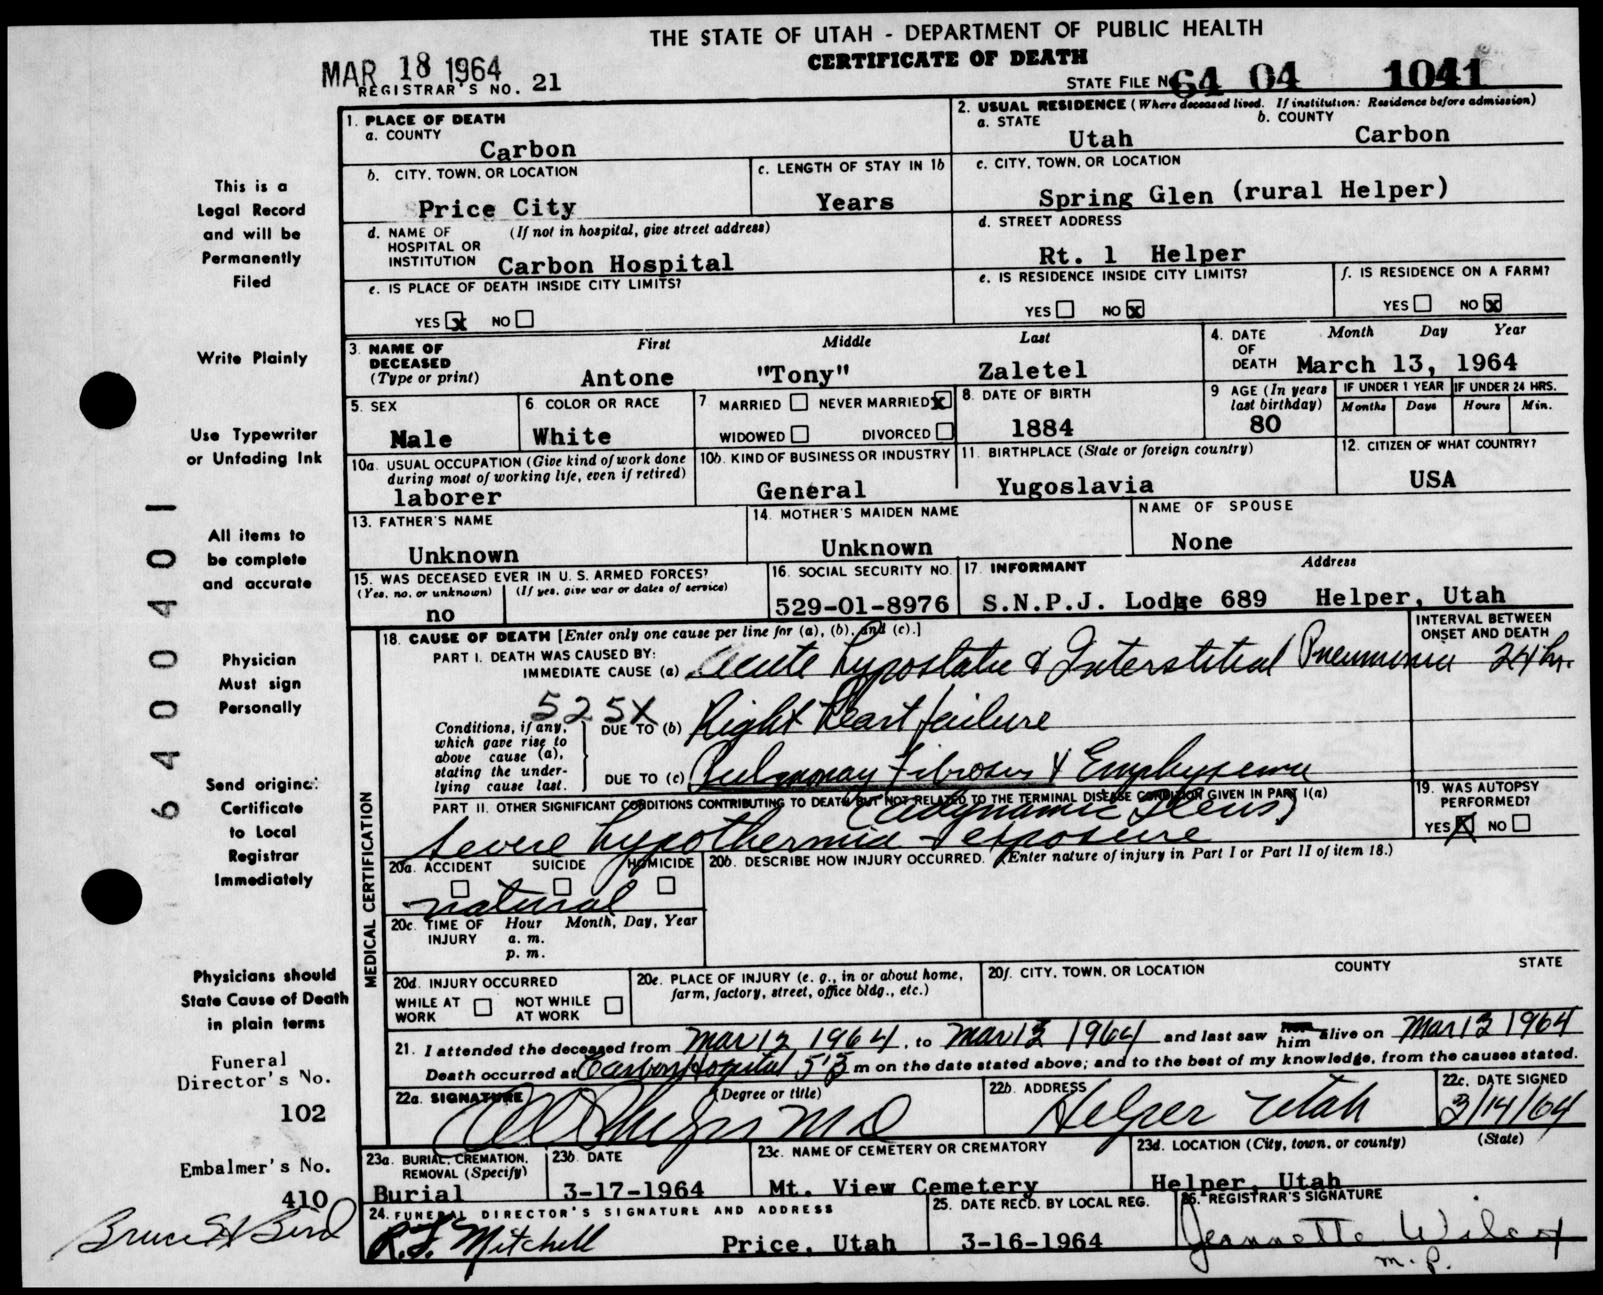 THE STATE OF UTAH - DEPARTMENT OF PUBLIC HEALTH
CERTIFICATE OF DEATH
MAR 18 1964
REGISTRAR'S NO. 21
STATE FILE NO. 64 04 1041
1. PLACE OF DEATH
a. COUNTY
Carbon
2. USUAL RESIDENCE (Where deceased lived. If institution: Residence before admission)
a. STATE
Utah
b. COUNTY
Carbon
b. CITY, TOWN, OR LOCATION
Price City
c. LENGTH OF STAY IN 1b
Years
c. CITY, TOWN, OR LOCATION
Spring Glen (rural Helper)
d. NAME OF HOSPITAL OR INSTITUTION
(If not in hospital, give street address)
Carbon Hospital
d. STREET ADDRESS
Rt. 1 Helper
e. IS PLACE OF DEATH INSIDE CITY LIMITS?
YES x NO
e. IS RESIDENCE INSIDE CITY LIMITS?
YES NO x
f. IS RESIDENCE ON A FARM?
YES NO x
3. NAME OF DECEASED
(Type or print)
First Middle Last
Antone "Tony" Zaletel
4. DATE OF DEATH
Month Day Year
March 13, 1964
5. SEX
Male
6 COLOR OR RACE
White
7 MARRIED NEVER MARRIED x
WIDOWED DIVORCED
8. DATE OF BIRTH
1884
9 AGE (In years last birthday)
80
IF UNDER 1 YEAR
Months Days
IF UNDER 24 HRS.
Hours Min.
10a. USUAL OCCUPATION (Give kind of work done during most of working life, even if retired)
laborer
10b. KIND OF BUSINESS OR INDUSTRY
General
11. BIRTHPLACE (State or foreign country)
Yugoslavia
12. CITIZEN OF WHAT COUNTRY?
USA
13. FATHER'S NAME
Unknown
14. MOTHER'S MAIDEN NAME
Unknown
NAME OF SPOUSE
None
15. WAS DECEASED EVER IN U. S. ARMED FORCES?
(Yes, no, or unknown) (If yes, give war or dates of service)
no
16. SOCIAL SECURITY NO.
529-01-8976
17. INFORMANT Address
S.N.P.J. Lodge 689 Helper, Utah
MEDICAL CERTIFICATION
18. CAUSE OF DEATH [Enter only one cause per line for (a), (b), and (c).]
INTERVAL BETWEEN ONSET AND DEATH
PART I. DEATH WAS CAUSED BY:
IMMEDIATE CAUSE (a) Acute hypostatic & Interstitial Pneumonia 24 hr.
525X
Conditions, if any, which gave rise to above cause (a), stating the underlying cause last.
DUE TO (b) Right heart failure
DUE TO (c) Pulmonary Fibrosis & Emphysema
PART II. OTHER SIGNIFICANT CONDITIONS CONTRIBUTING TO DEATH BUT NOT RELATED TO THE TERMINAL DISEASE CONDITION GIVEN IN PART I(a)
(adynamic Ileus)
Severe hypothermia - exposure
19. WAS AUTOPSY PERFORMED?
YES X NO
20a. ACCIDENT SUICIDE HOMICIDE
natural
20b. DESCRIBE HOW INJURY OCCURRED. (Enter nature of injury in Part I or Part II of item 18.)
20c. TIME OF INJURY
Hour Month, Day, Year
a. m.
p. m.
20d. INJURY OCCURRED
WHILE AT WORK NOT WHILE AT WORK
20e. PLACE OF INJURY (e. g., in or about home, farm, factory, street, office bldg., etc.)
20f. CITY, TOWN, OR LOCATION COUNTY STATE
21. I attended the deceased from Mar 12 1964, to Mar 13 1964 and last saw her him alive on Mar 13 1964
Death occurred at Carbon Hospital m on the date stated above; and to the best of my knowledge, from the causes stated.
22a. SIGNATURE (Degree or title)
MD
22b. ADDRESS
Helper Utah
22c. DATE SIGNED
3/14/64
23a. BURIAL, CREMATION, REMOVAL (Specify)
Burial
23b. DATE
3-17-1964
23c. NAME OF CEMETERY OR CREMATORY
Mt. View Cemetery
23d. LOCATION (City, town, or county) (State)
Helper, Utah
24. FUNERAL DIRECTOR'S SIGNATURE AND ADDRESS
R.F. Mitchell Price, Utah
25. DATE RECD. BY LOCAL REG.
3-16-1964
26. REGISTRAR'S SIGNATURE
Jeannette Wilcox
m.p.
This is a
Legal Record
and will be
Permanently
Filed
Write Plainly
Use Typewriter
or Unfading Ink
All items to
be complete
and accurate
Physician
Must sign
Personally
Send original
Certificate
to Local
Registrar
Immediately
Physicians should
State Cause of Death
in plain terms
Funeral
Director's No.
102
Embalmer's No.
410
Bruce H Bird
64000401